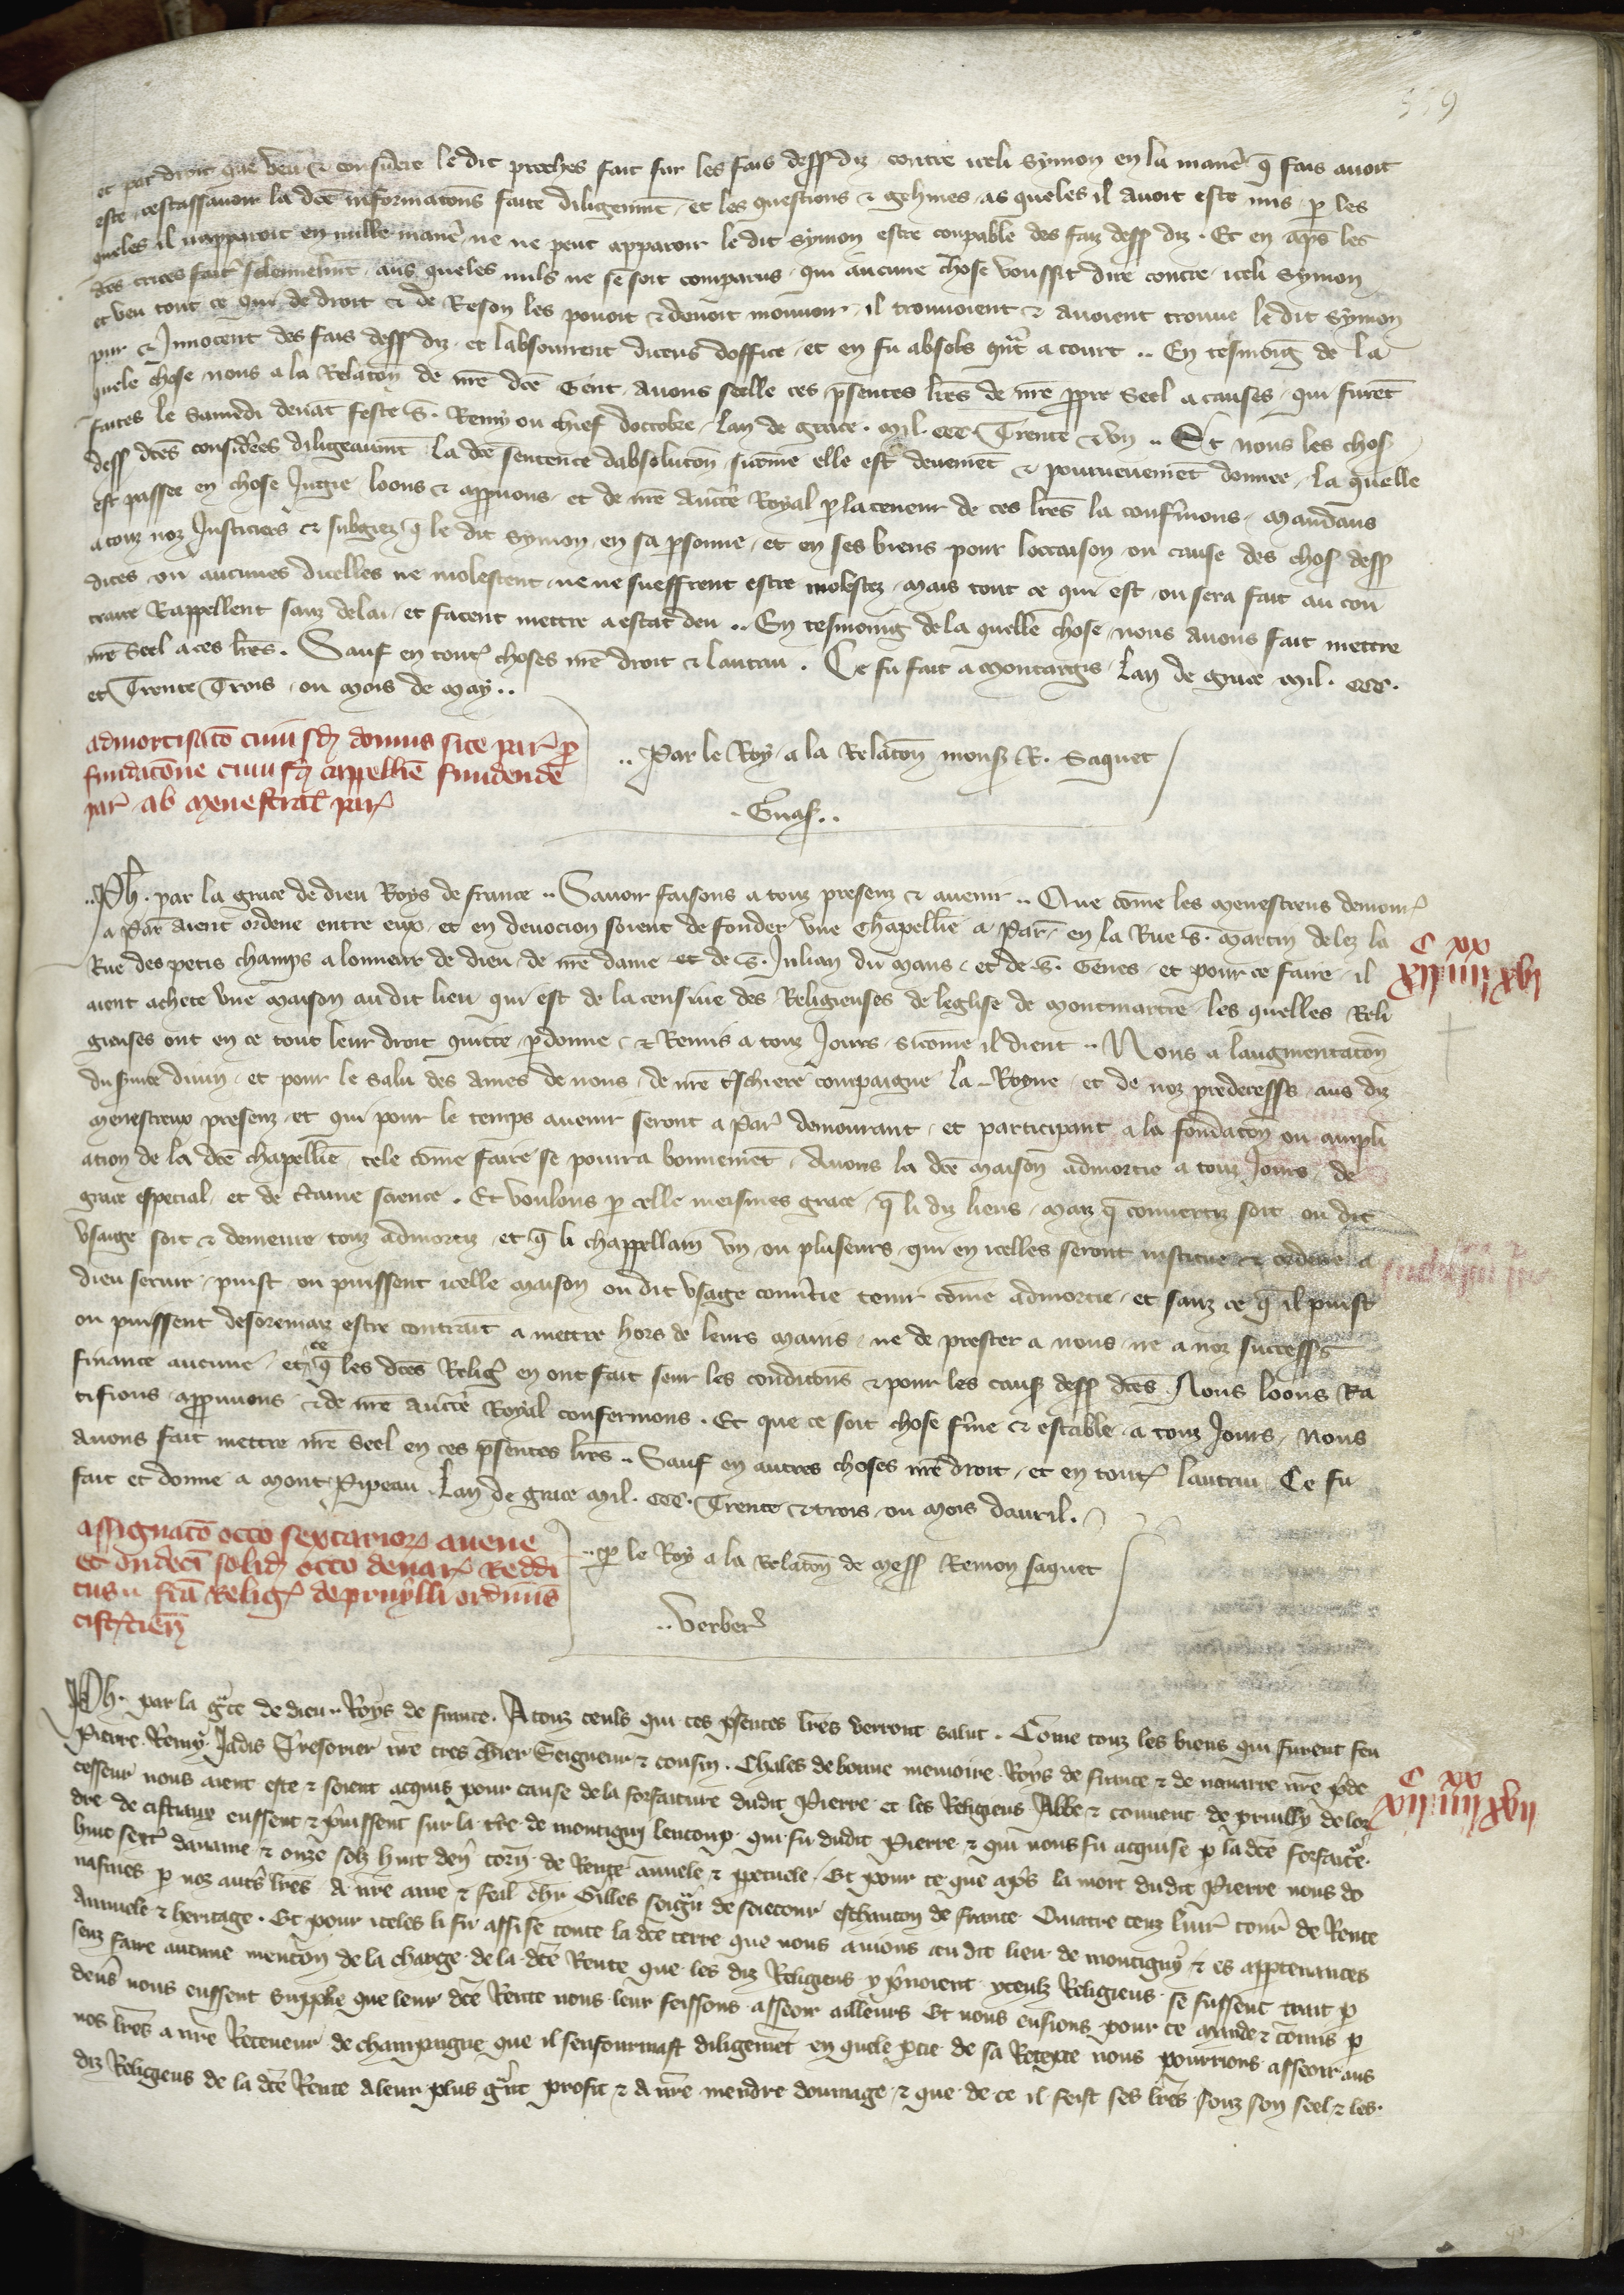 559
et par droit que veu & considere le dit proches fait sur les fais dess diz contre iceli Symon en la manie q̄ fais avoit
este cestassavoir la dcē informacons faite diligeument et les questions & gehines as queles il avoit este mis p les
queles il napparoit en nulle manie ne ne peut apparoir le dit Symon estre coupable des faiz dess diz. Et en ap̄s les
dcēs criees fait solennelmt aus queles nuls ne se soit comparus qui aucune chose voussit dire contre iceli Symon
et veu tout ce qui de droit & de Reson les povoit & devoit mouvoir il trouvoient & avoient trouve le dit Symon
pur & Innocent des fais dess diz et labsourent dicens doffice et en fu absols q̄nt a court .. En tesmoing de la
quele chose nous a la Relacōn de nr̄e dcē Gent avons seelle ces p̄sentes lr̄es de nr̄e ppre Seel a causes qui furēt
faites le Samedi devāt feste S. Remy ou chief doctobre lan de grace. mil. ccc. Trente & un .. Et nous les chos
dess dcēs considerees diligeaumt la dcē sentence dabsolucōn sicome elle est deuemēt & pourveuemēt donnee la quelle
est passee en chose Jugie loons & appvons et de nr̄e auctē Royal p la teneur de ces lr̄es la confermons mandans
a touz noz Justiciers & subgiez q̄ le dit Symon en sa p̄sonne et en ses biens pour loccaison ou cause des chos dess
dites ou aucunes dicelles ne molestent ne ne sueffrent estre molestez mais tout ce qui est ou sera fait au con
traire Rappellent sanz delai et facent mettre a estat deu .. En tesmoing de la quelle chose nous avons fait mettre
nr̄e Seel a ces lr̄es. Sauf en tout choses nr̄e droit & lautrui. Ce fu fait a Montargis Lan de grace mil. ccc.
et Trente Trois ou mois de May..
admortisatō cuiusd domus site par p
fundacōne cuiusd cappellie fundende
par ab menestrall par
.. Par le Roy a la Relacōn mons R. Saquet
. Guas ..
.. Ph. par la grace de dieu Roys de france .. Savoir faisons a touz presenz & avenir .. Que cōme les menestreus demour
a Par aient ordene entre eux et en devocion soient de fonder une Chapellie a Par en la Rue S. Martin delez la
Rue des petis champs a lonneur de dieu de nr̄e dame et de S. Julian du Mans et de S. Genes et pour ce faire il
aient achete une maison audit lieu qui est de la censive des Religieuses de leglise de Montmartre les quelles Reli
gieuses ont en ce tout leur droit quitte pdonne & Remis a touz Jours sicome il dient .. Nous a laugmentacōn
du s̄vice divin et pour le salu des ames de nous de nr̄e treschiere compaigne la Royne et de noz predecess aus diz
menestreux presenz et qui pour le temps avenir seront a Par demourant et participant a la fondacōn ou ampli
ation de la dcē chapellie tele cōme faire se pourra bonnemēt Avons la dcē maison admortie a touz Jours de
grace especial et de certaine science. Et voulons p celle meismes grace q̄ li diz lieus maiz q̄ convertiz soit ou dit
usage soit & demeure touz admortiz et q̄ li chappellain un ou pluseurs qui en icelles seront institue & ordene a
dieu servir puist ou puissent icelle maison ou dit usage convtie tenir cōme admortie et sanz ce q̄ il puist
ou puissent desoremaiz estre contraīt a mettre hors de leurs mains ne de prester a nous ne a noz success
finance aucune et ce q̄ les dcēs Relig en ont fait seur les condicōns & pour les caus dess dcēs Nous loons Ra
tifions appvons & de nr̄e auctē Royal confermons. Et que ce soit chose fme & estable a touz Jours Nous
avons fait mettre nr̄e Seel en ces p̄sentes lr̄es .. Sauf en autres choses nr̄e droit et en tout lautrui Ce fu
fait et donne a Mont Pipeau Lan de grace mil. ccc. Trente & trois ou mois davril.
C xx
xii iiii xvi
assignatō octo sextarior avene
et undeci solid octo denar Reddi
tus fcā Relig de pruylli ordinis
cisterciens
.. p le Roy a la Relacōn de mess Remon saquet
.. Verber
Ph. par la gce de dieu .. Roys de france. A touz ceuls qui ces p̄sentes lr̄es verront salut. Come touz les biens qui furent feu
Pierre Remy Jadis Tresorier nr̄e tres chier Seigneur & cousin. Chales de bonne memoire Roys de france & de navarre nr̄e p̄de
cesseur nous aient este & soient acquis pour cause de la forfaiture dudit Pierre et les Religieus Abbe & convent de pruilly de lor
dre de cistiaux eussent & p̄nissent sur la tr̄e de montigni lencoup qui fu dudit Pierre & qui nous fu acquise p la dcē forfaitē.
huit sext davaine & onze solz huit den̄ torn de Rente annuele & ppetuele. Et pour ce que ap̄s la mort dudit Pierre nous do
nasmes p noz autrs lr̄es A nr̄e ame & feal ch̄r Gilles seigr̄ de soiecour eschancon de france Quatre cenz livr tour de Rente
Annuele & heritage. Et pour iceles li fu assise toute la dcē terre que nous avions ou dit lieu de montigny & es apptenances
senz faire aucune mencōn de la charge de la dcē Rente que les diz Religieus y p̄noient yceulz Religieus se fussent trait p
devs nous eussent supplie que leur dcē Rente nous leur feissons asseoir ailleurs Et nous eusions pour ce mande & cōmis p
nos lr̄es a nr̄e Receveur de champaigne que il senfourmast diligemēt en quele ptie de sa Recepte nous pourrions asseoir aus
diz Religieus de la dcē Rente a leur plus g̃nt profit & a nr̄e mendre doumage & que de ce il feist ses lr̄es souz son seel & les.
C xx
xii iiii xvii